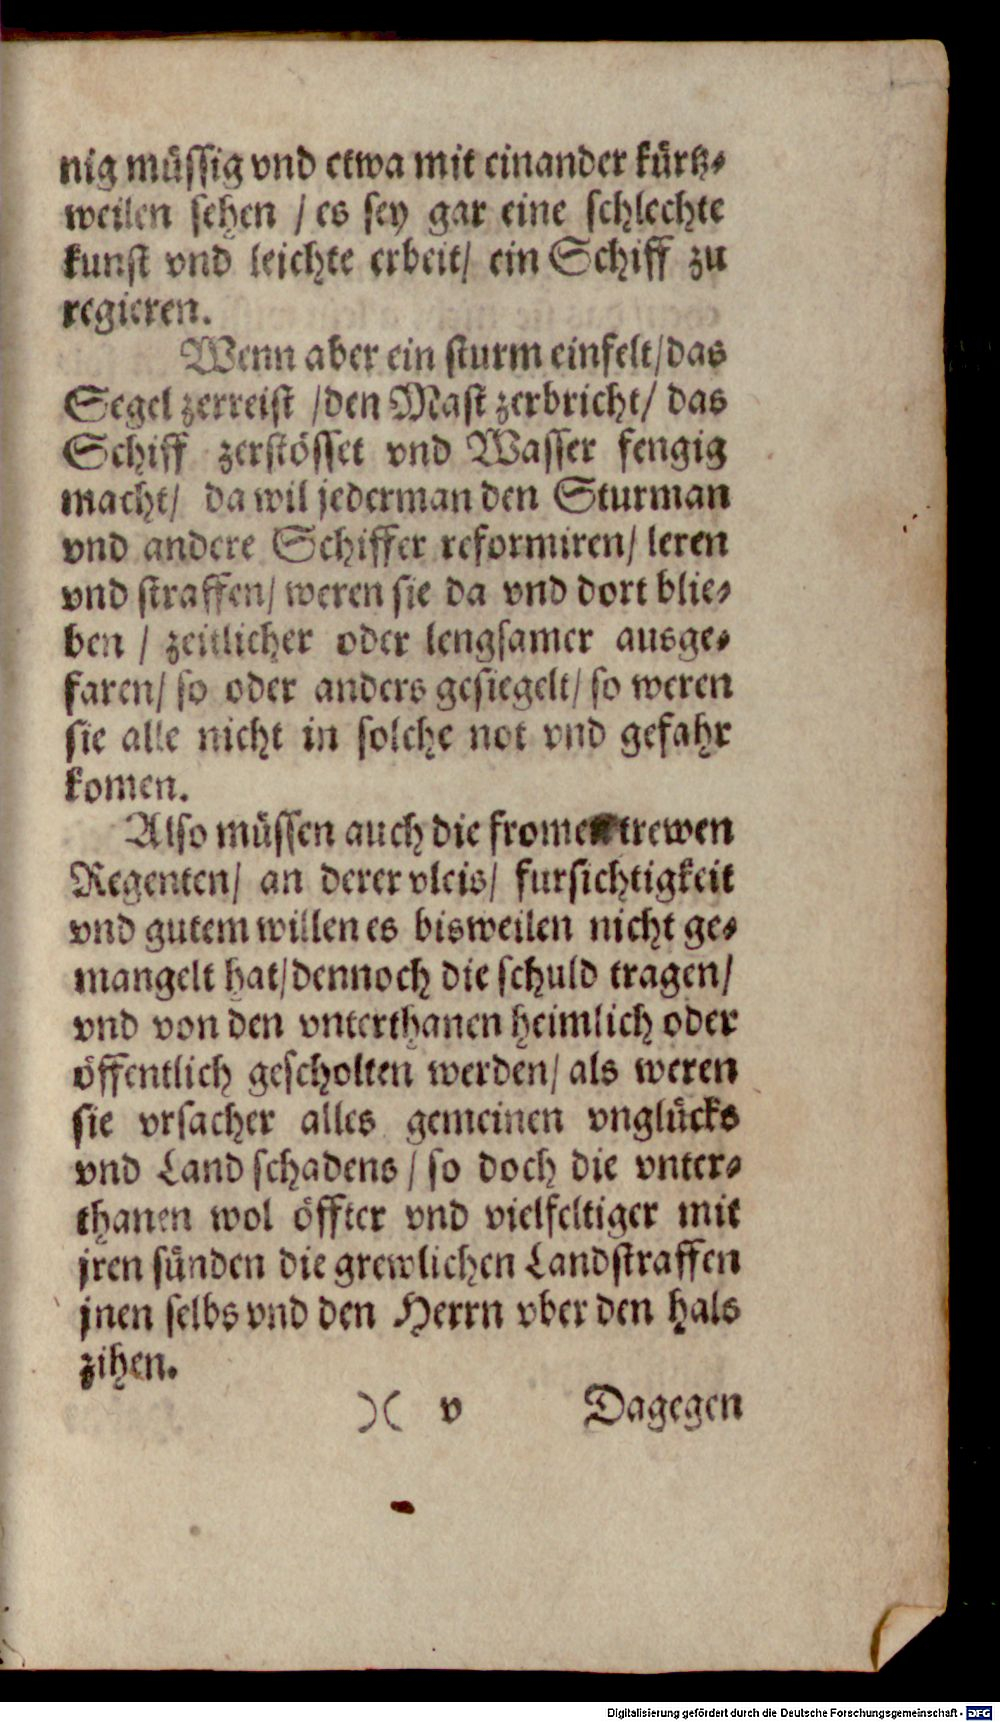 nig müssig vnd etwa mit einander kürtz⸗
weilen sehen / es sey gar eine schlechte
kunst vnd leichte erbeit/ ein Schiff zu
regieren.
Wenn aber ein sturm einfelt/das
Segel zerreist /den Mast zerbricht/ das
Schiff zerstösset vnd Wasser fengig
macht/ da wil jederman den Sturman
vnd andere Schiffer reformiren/ leren
vnd straffen/ weren sie da vnd dort blie⸗
ben / zeitlicher oder lengsamer ausge⸗
faren/ so oder anders gesiegelt/ so weren
sie alle nicht in solche not vnd gefahr
komen.
Also müssen auch die fromen trewen
Regenten/ an derer vleis/ fursichtigkeit
vnd gutem willen es bisweilen nicht ge⸗
mangelt hat/dennoch die schuld tragen/
vnd von den vnterthanen heimlich oder
öffentlich gescholten werden/ als weren
sie vrsacher alles gemeinen vnglücks
vnd Land schadens / so doch die vnter⸗
thanen wol öffter vnd vielfeltiger mit
jren sünden die grewlichen Landstraffen
jnen selbs vnd den Herrn vber den hals
zihen.
)( v Dagegen
Digitalisierung gefördert durch die Deutsche Forschungsgemeinschaft - DFG